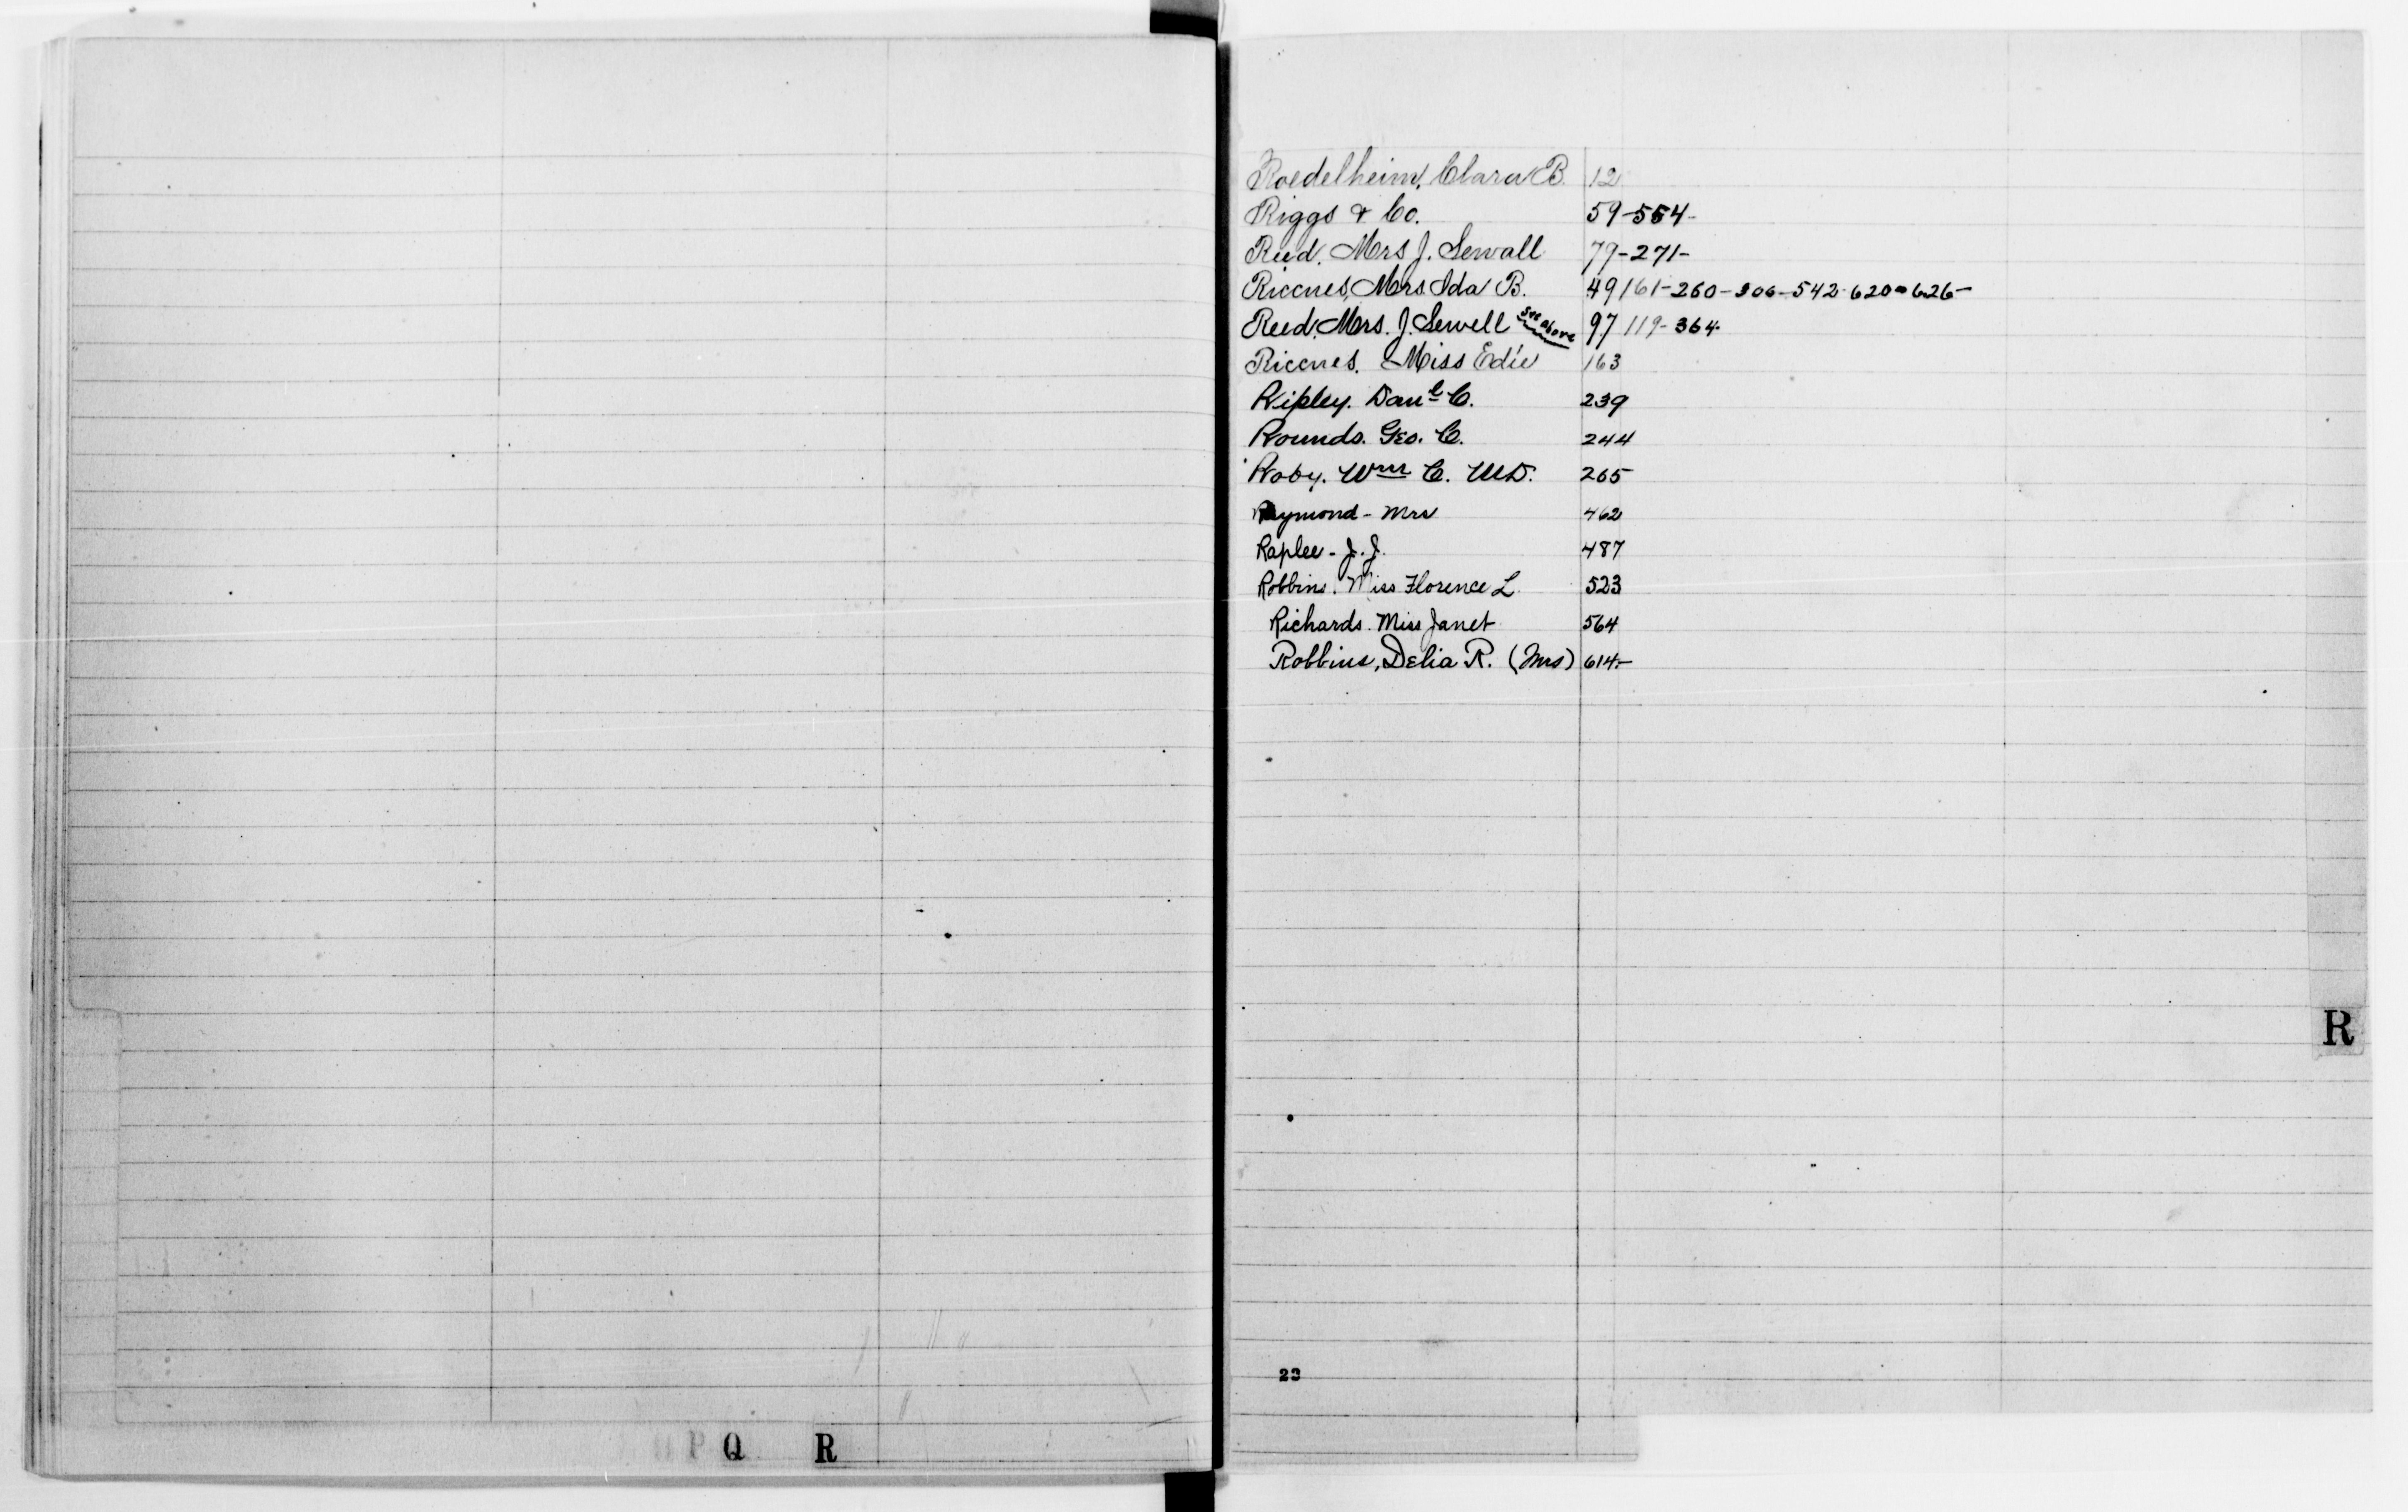 Roedelheim, Clara B. 12
Riggs & Co. 59-554-
Reed. Mrs J. Sewall 79-271-
Riccnes, Mrs. Ida B. 49 161-260-306-542-620-626-
Reed, Mrs. J. Sewell see above 97 119-364-
Riccnes. Miss Edie 163
Ripley. Danl C. 239
Rounds. Geo. C. 244
Roby. Wm C. M.D. 265
Raymond - Mrs 462
Raplee - J. J. 487
Robbins. Miss Florence L. 523
Richards. Miss Janet 564
Robbins, Delia R. (Mrs) 614-
R
23
P Q R